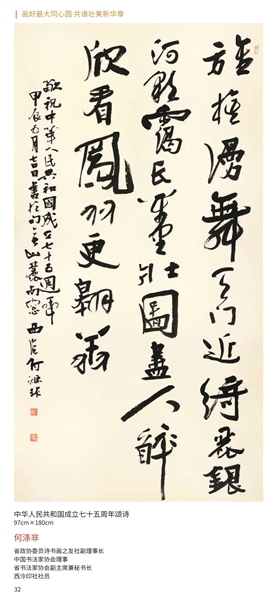 画好最大同心圆 共谱壮美新华章
旌旗漫舞天门近綺麗銀
河彩靄民壯圖盡人醉
欣看鳳羽更翩
敬祝中華人民共和國成立七十五周年
甲辰九月吉日書於山麓南窗 西泠何滌非
中华人民共和国成立七十五周年颂诗
97cm×180cm
何涤非
省政协委员诗书画之友社副理事长
中国书法家协会理事
省书法家协会副主席兼秘书长
西泠印社社员
32